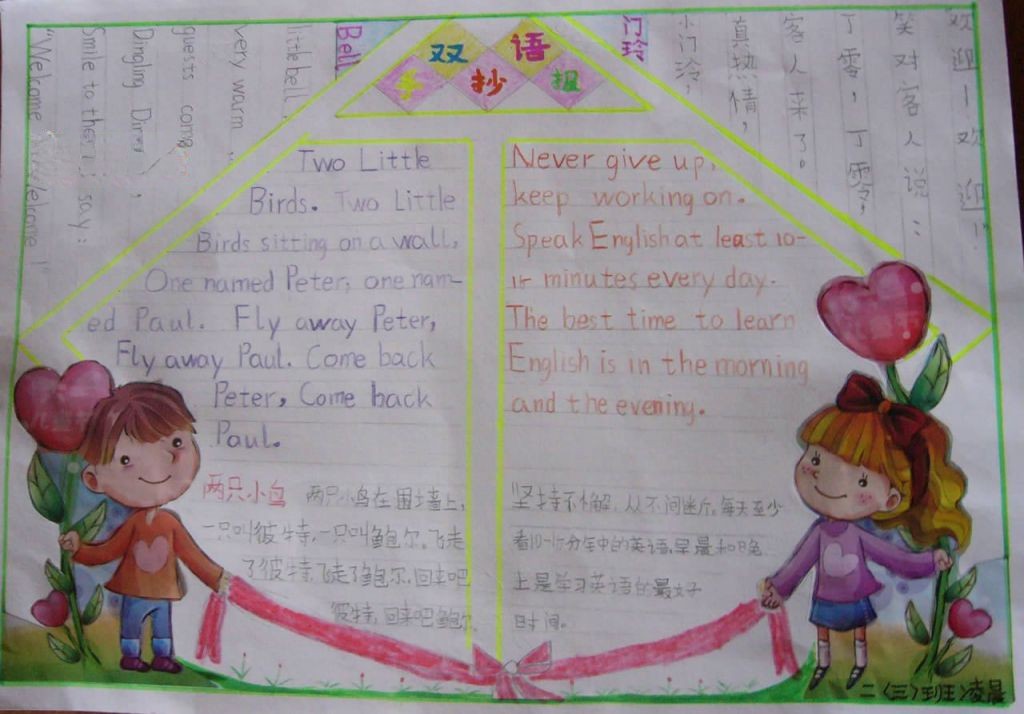 双语
手抄报
Bell
little bell
very warm
guests come
Dingling
Smile to say:
"Welcome Welcome!"
门玲
小门泠,
真热情,
客人来了。
丁零,丁零,
笑对客人说:
"欢迎!欢迎!"
Two Little
Birds. Two Little
Birds sitting on a wall,
One named Peter, one nam-
ed Paul. Fly away Peter,
Fly away Paul. Come back
Peter, Come back
Paul.
两只小鸟 两只小鸟在围墙上,
一只叫彼特,一只叫鲍尔。飞走
了彼特,飞走了鲍尔,回来吧
彼特,回来吧鲍尔.
Never give up,
keep working on.
Speak English at least 10-
15 minutes every day.
The best time to learn
English is in the morning
and the evening.
坚持不懈,从不间断。每天至少
看10-15分钟的英语,早晨和晚
上是学习英语的最好
时间。
二(三)班凌晨